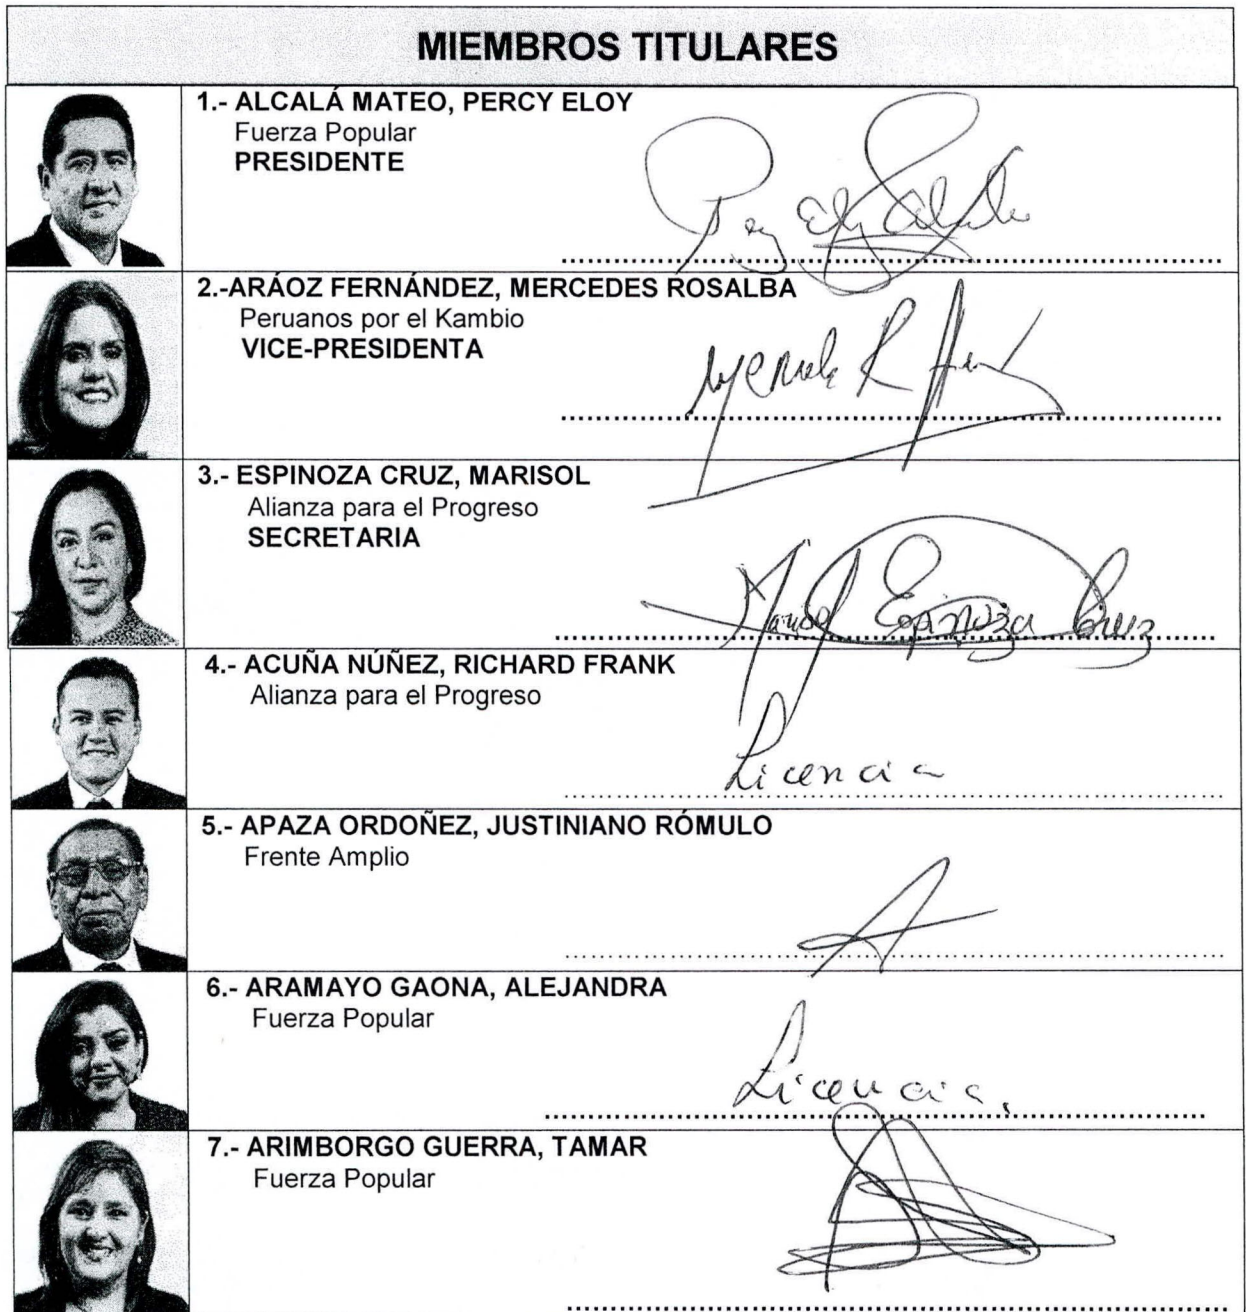 MIEMBROS TITULARES
1.- ALCALÁ MATEO, PERCY ELOY
Fuerza Popular
PRESIDENTE
2.-ARÁOZ FERNÁNDEZ, MERCEDES ROSALBA
Peruanos por el Kambio
VICE-PRESIDENTA
3.- ESPINOZA CRUZ, MARISOL
Alianza para el Progreso
SECRETARIA
Marisol Espinoza Cruz
4.- ACUÑA NÚÑEZ, RICHARD FRANK
Alianza para el Progreso
Licencia
5.- APAZA ORDOÑEZ, JUSTINIANO RÓMULO
Frente Amplio
6.- ARAMAYO GAONA, ALEJANDRA
Fuerza Popular
Licencia.
7.- ARIMBORGO GUERRA, TAMAR
Fuerza Popular